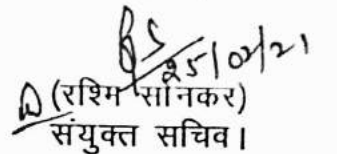 25/02/21
(रश्मि सोनकर)
संयुक्त सचिव।